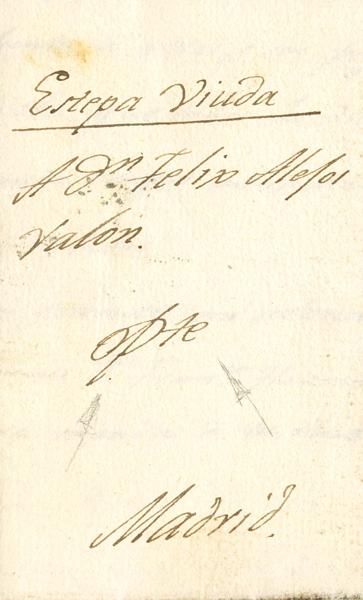 Estepa Viuda
A Dn Felix Alefoi
Valon.
Madrid.